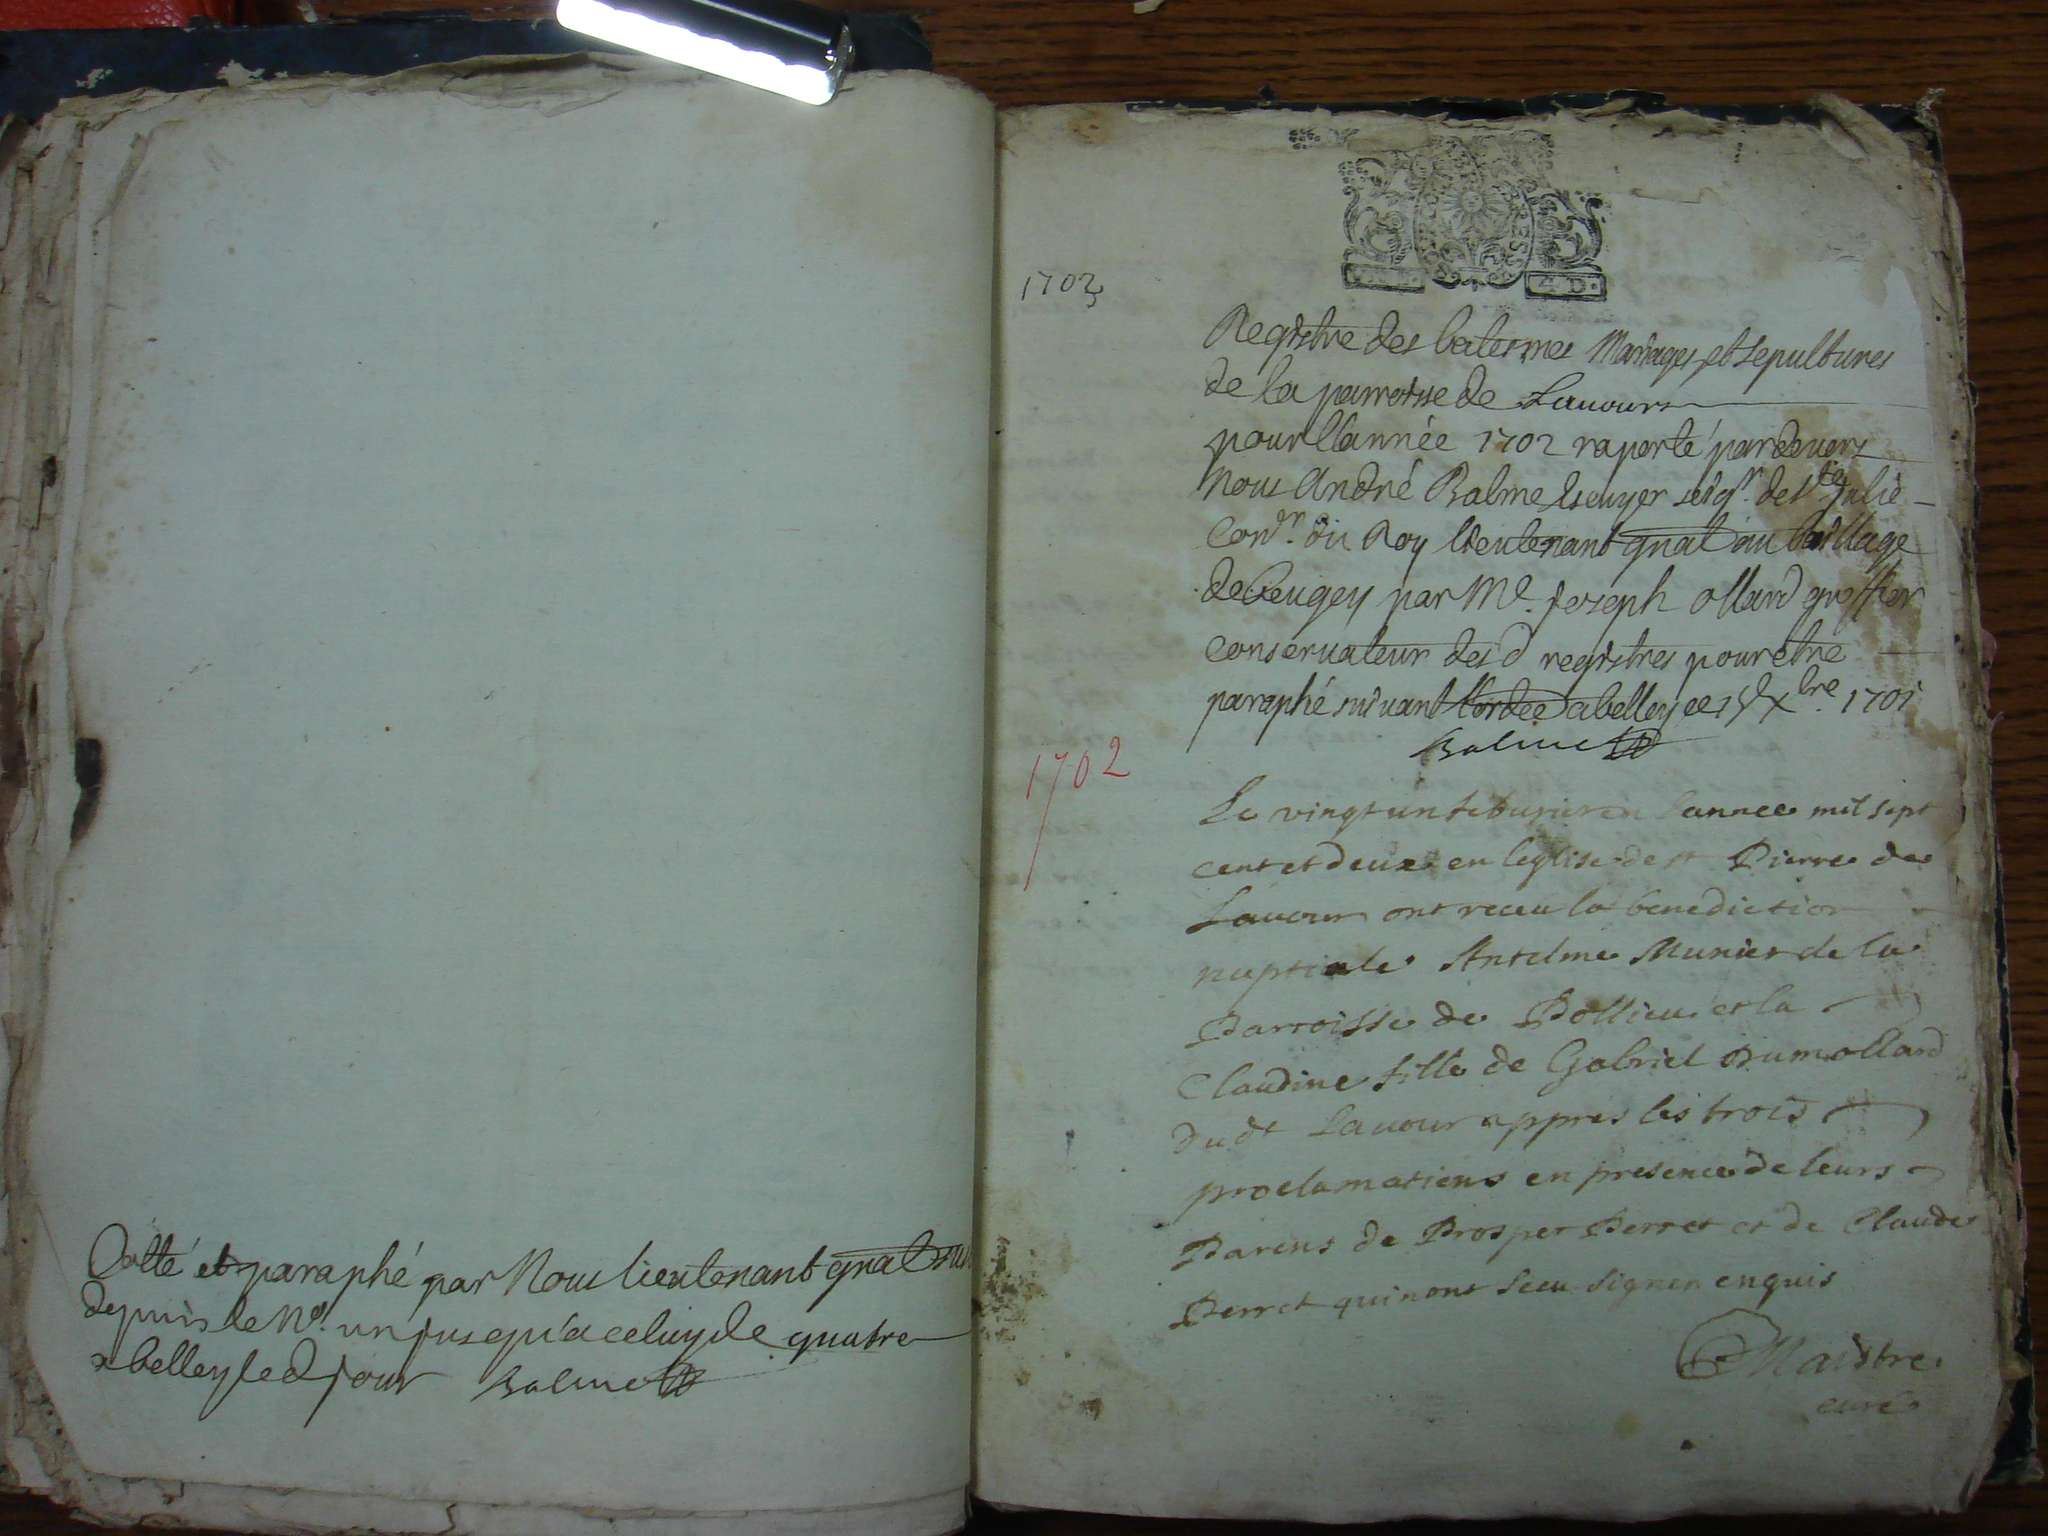 Cotté et paraphé par Nous lieutenant gnal
depuis le No. un jusqu'a celuy de quatre
a belley led jour Balme
1702
Registre des batesmes Mariages et sepultures
de la parroisse de Lauours
pour l'année 1702 raporté pardeuers
Nous André Balme Escuyer seigr. de Ste Julie
Conr. du Roy lieutenant gnal au baillage
de beugey par Me. Joseph ollard greffier
conseruateur desd registres pour etre
paraphé suiuant l'ordce a belley ce Xbre. 1701
Balme
1702
Le vingt un feburier en l'annee mil sept
cent et deux en leglise de st Pierre de
Lauour ont receu la benediction
nuptiale Antelme Munier de la
Parroisse de Pollieu et la
Claudine fille de Gabriel Dumollard
dudt Lauour appres les trois
proclamations en presence de leurs
Parens de Prosper Perret et de Claude
Perret qui nont sceu signer enquis
Maistre
curé